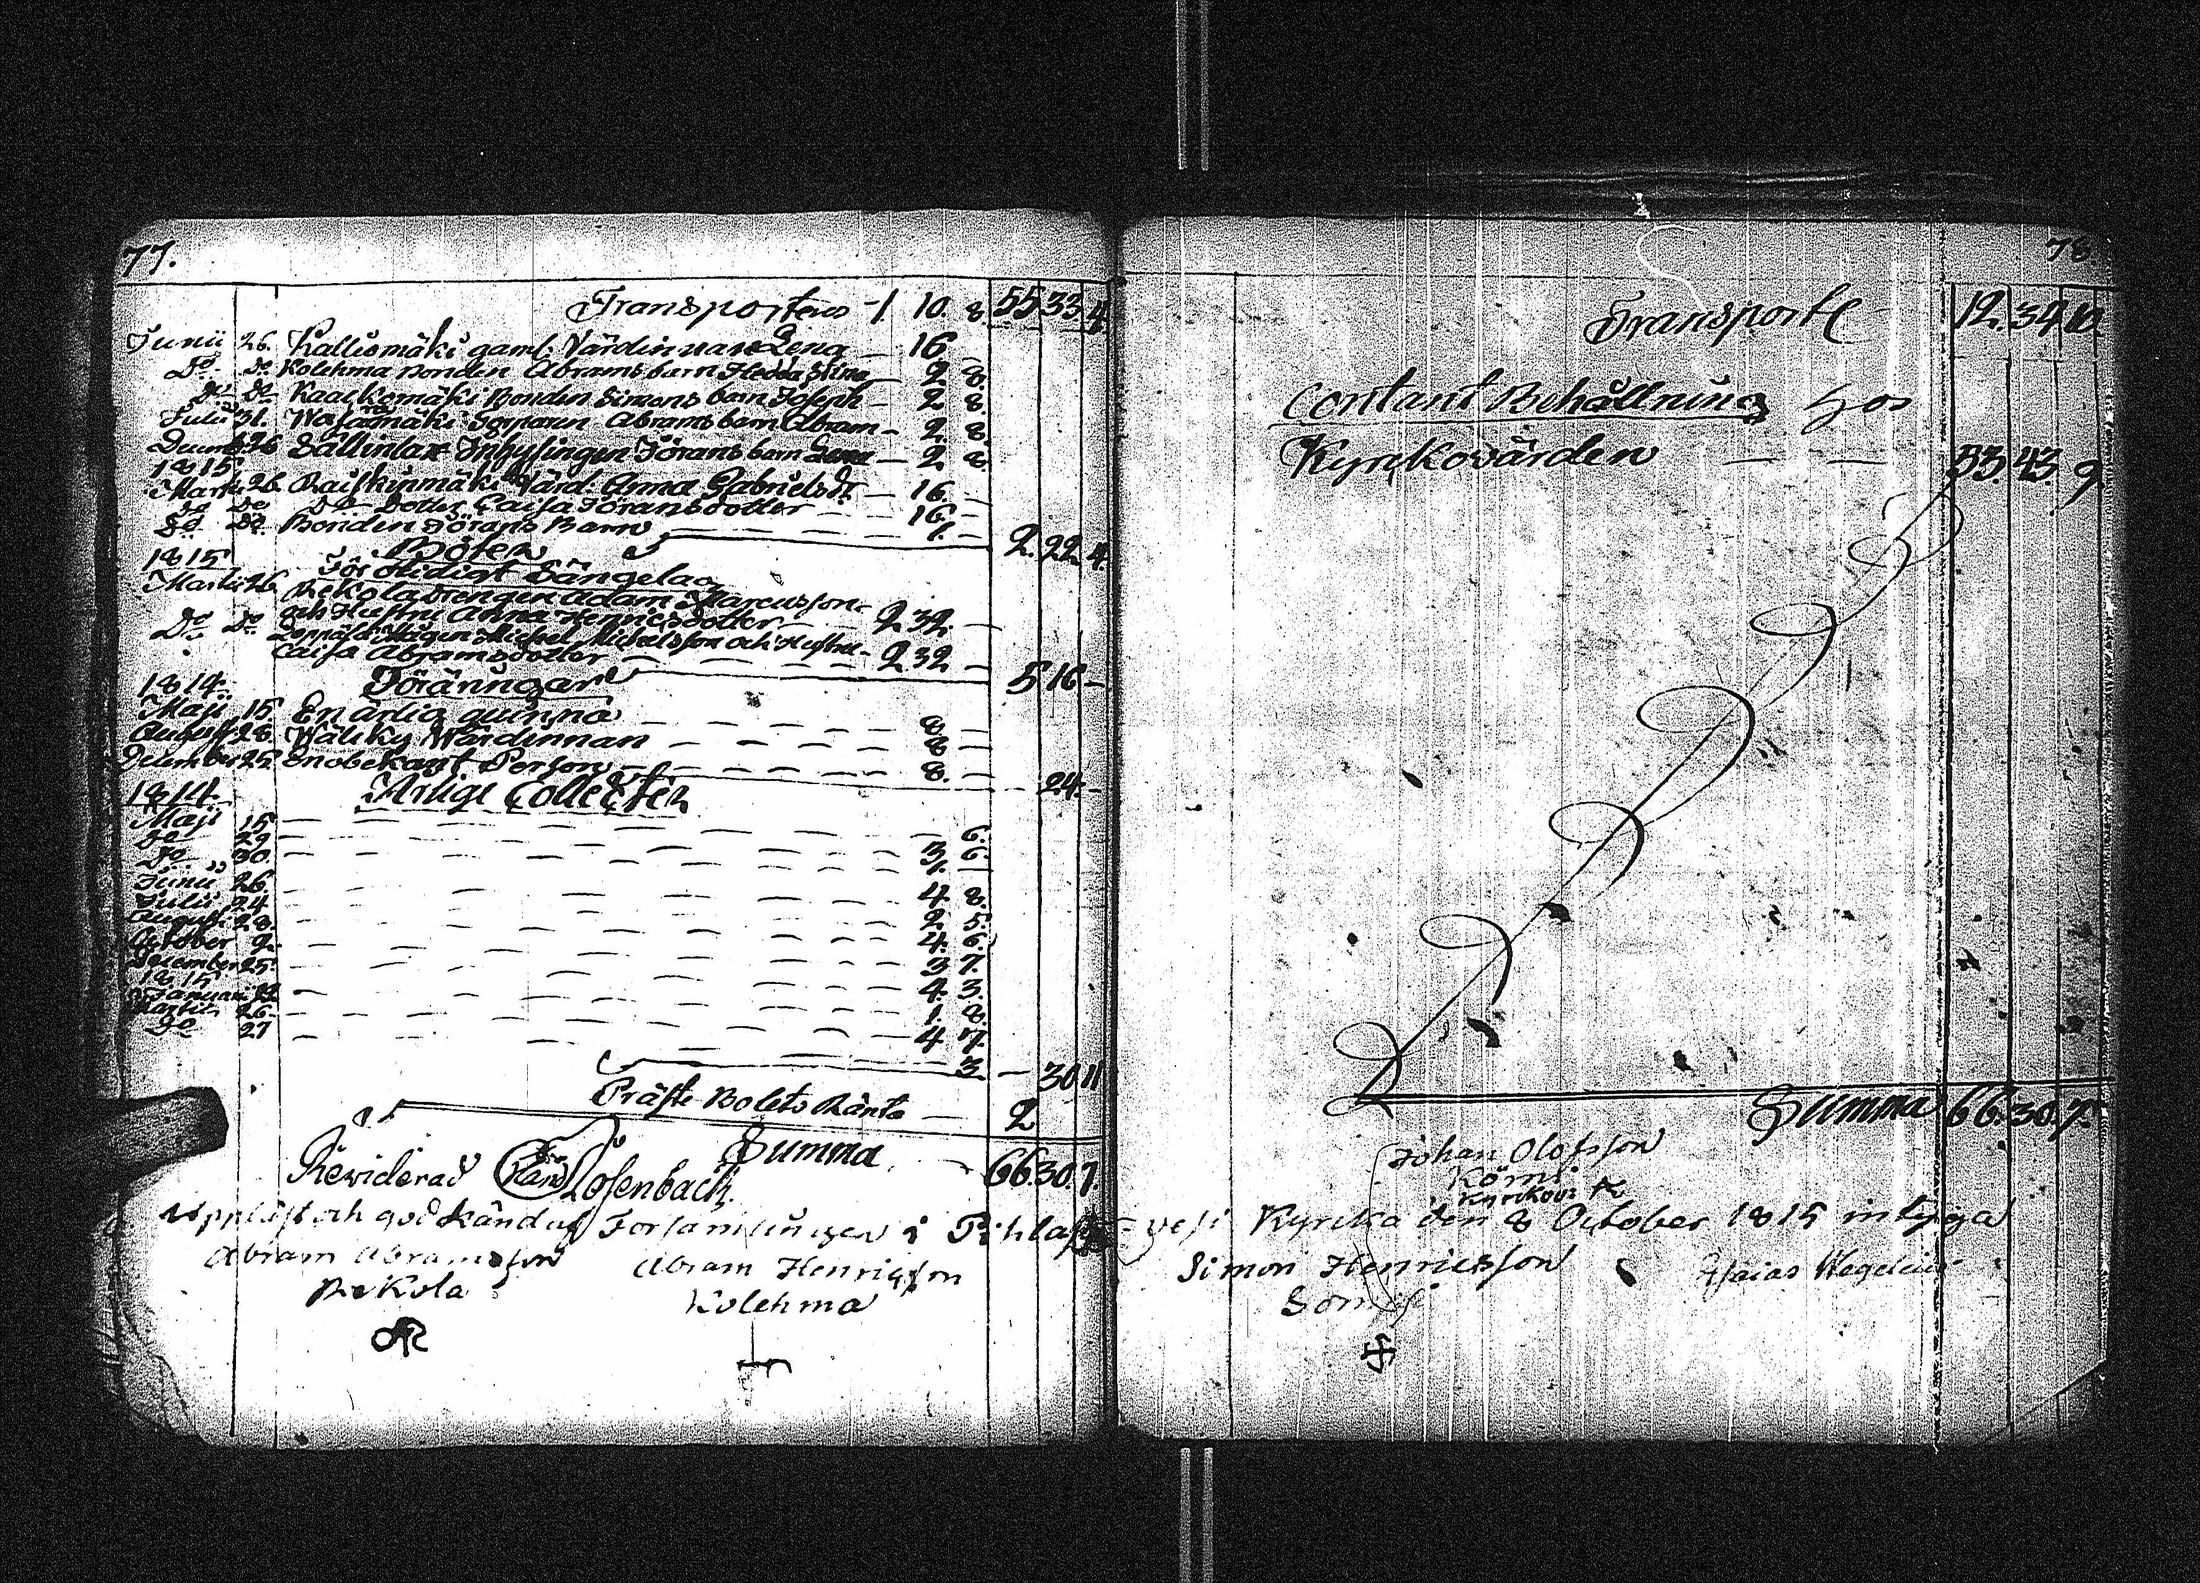 77.
Transporteras 1 10. 8. 55 33 4
Junii 26. Kallismäki gaml. Värdinnan Lena — 16 —
Do. do. Kolehma Bonden Abrams barn Hedda — 2 8.
do do Bonden Simons barn Joseph — 2 8.
Julii 31. Abrams barn Abram — 2. 8.
Decemb. 26 Sällinlax Inhysingen Jörans barn Lena — 2 8.
1815
Martii 26 Raiskinmäki Värd. Anna Gabrielsdr. — 16. —
do do Do. Dotter Caisa Jöransdotter — 16. —
Do. Do. Bonden Jörans Barn — 1. —
2. 22. 4
Böter
1815 För otidigt Sängelag
Martii 26 Rekola Drengen Adam Marcusson
och Hustru Anna Henricsdotter — 2 32. —
Do Do Mågen Michel Michelsson och Hustru
Caisa Abramsdotter — 2 32 —
5 16 —
1814. Föräringar
Maji 15. En ärlig quinna — 8 —
Augusti 28. Wäliky Wärdinnan — 8 —
December 25. En obekant Person — 8. —
24. —
1814. Årlige Collecter
Maji 15 — 6.
do 29 — 3 6.
Do 30. — 1. —
Junii 26 — 4. 8.
Julii 24 — 2. 5.
Augusti 28. — 4. 6.
October 2. — 3 7.
December 25. — 4. 3.
1815.
Januari — 1. 8.
Martii 26. — 4 7.
Do 27 — 3.
— 30 11
Präste Bolets Ränta — 2
Summa — 66. 30. 7.
Reviderad Losenbach.
Uppläst och godkänd af Forsamlingen i
Abram Abramsson
Rekola
Abram Henricsson
Kolehma
78.
Transport 12. 34. 10
Contant Behållning hos
Kyrckovärden — — 53. 43. 9
Summa 66. 30. 7.
Johan Olofsson
Körni
vesi Kyrcka den 8 October 1815 intyga
Simon Henricsson
Esaias Wegelius